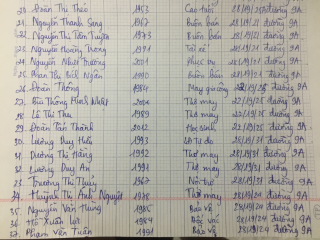 20. Đoàn Thị Thảo 1953 Cao tuổi 28/19/25 đường 9A
21. Nguyễn Thanh Sang 1967 Buôn bán 28/19/21 đường 9A
22. Nguyễn Thị Tiến Tuyền 1973 Buôn bán 28/19/21 đường 9A
23. Nguyễn Hoàng Trọng 1971 Tài xế 28/19/ đường 9A
24. Nguyễn Nhựt Trường 2001 Phục vụ 28/19/ đường 9A
25. Phan Thị Bích Ngân 1990 Buôn bán 28/19/ đường 9A
26. Đoàn Thông 1984 May gia công 28/19/25 đường 9A
27. Bùi Thông Minh Nhật Thợ may 28/19/25 đường 9A
28. Lê Thị Thu 1989 Thợ may 28/19/25 đường 9A
29. Đoàn Tấn Thành 2012 Học sinh 28/19/25 đường 9A
30. Lương Duy Hiển 1993 Tự do 28/19/31 đường 9A
31. Dương Thị Hằng 1992 Thợ may 28/19/31 đường 9A
32. Lương Duy An 1991 Thợ may 28/19/31 đường 9A
33. Trương Thị Thủy 1967 Nội trợ 28/19/31 đường 9A
34. Huỳnh Thị Ánh Nguyệt 1978 Thợ may 28/19/29 đường 9A
35. Nguyễn Văn Thắng 1985 Bảo vệ 28/19/29 đường 9A
36. Xuân Lợi 1984 Bốc vác 28/19/29 đường 9A
37. Phạm Văn Tuấn 1991 Bảo vệ 28/19/29 đường 9A